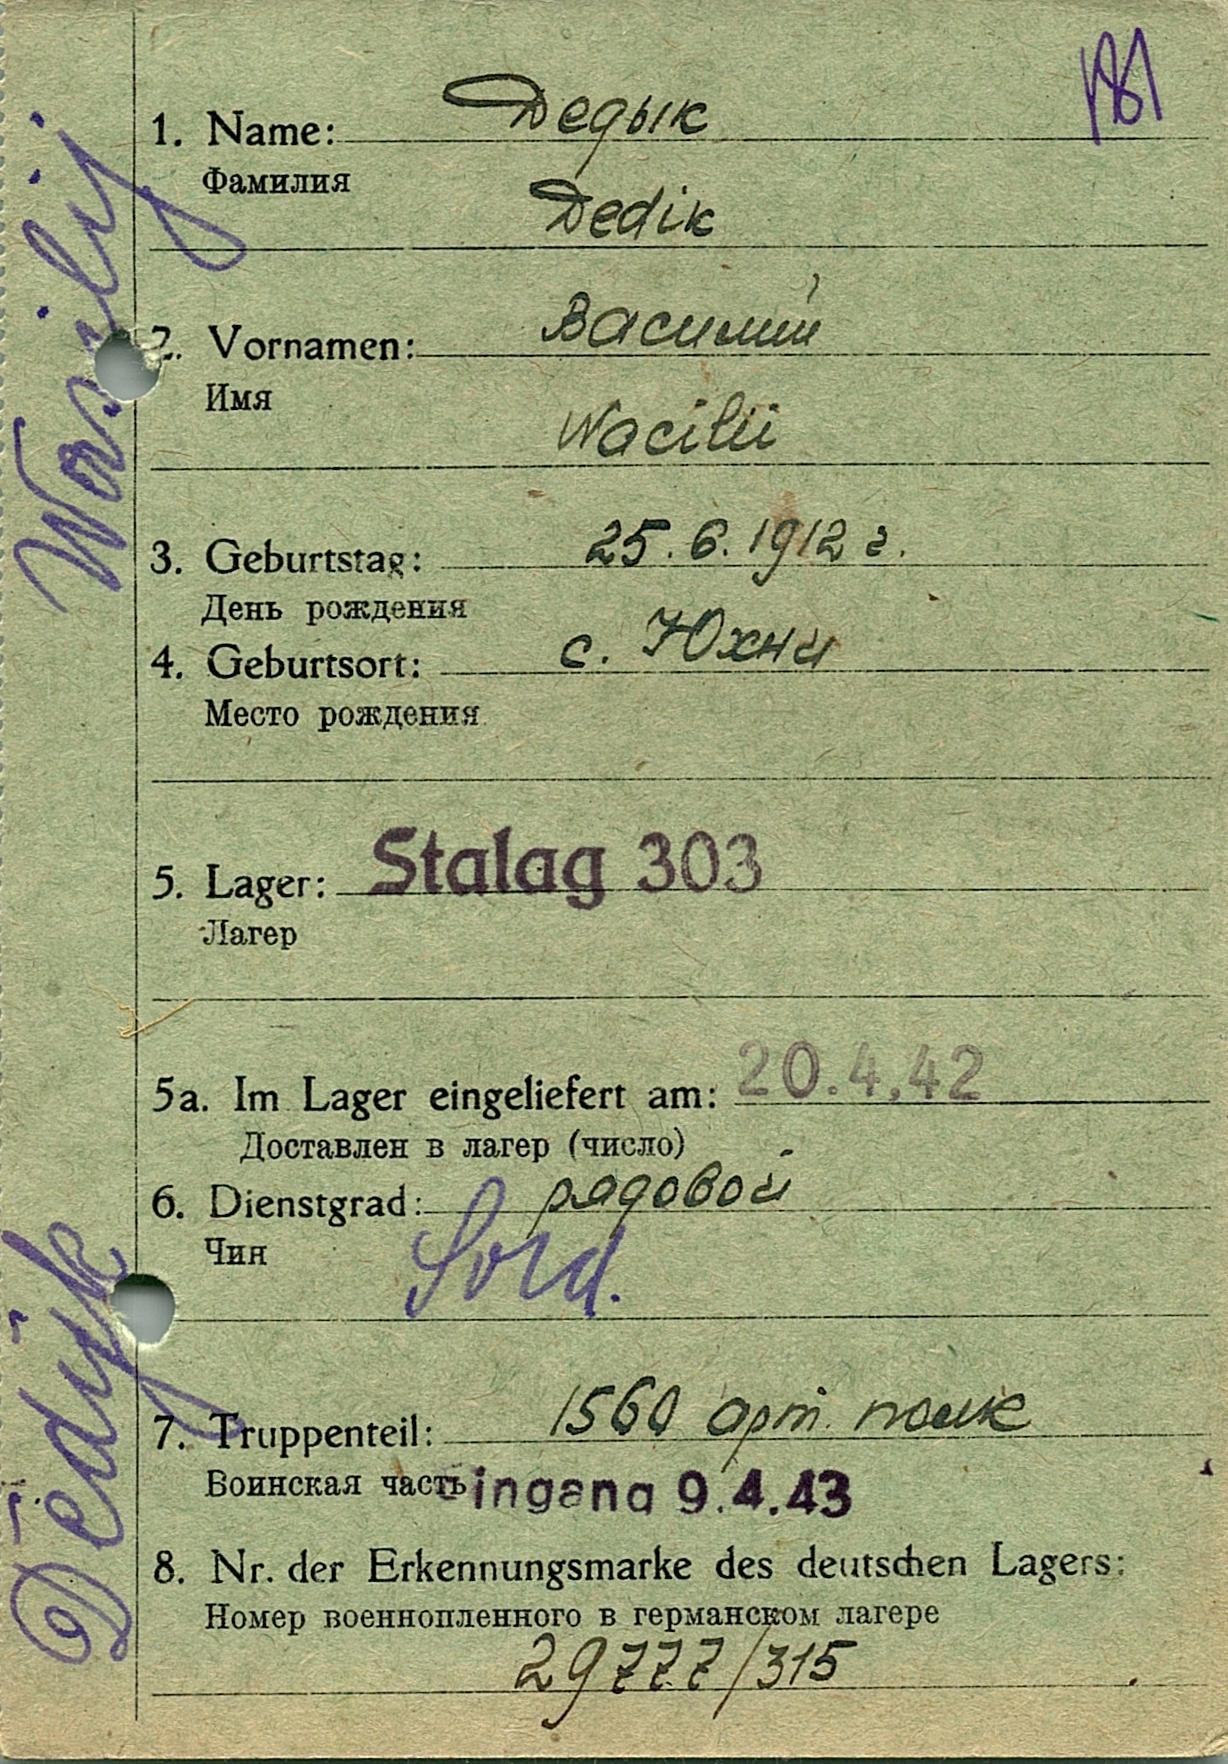 1. Name: Дедык
Фамилия
Dedik
2. Vornamen: Василий
Имя
Wacilii
3. Geburtstag: 25.6.1912 г.
День рождения
4. Geburtsort: с. Юхни
Место рождения
5. Lager: Stalag 303
Лагер
5a. Im Lager eingeliefert am: 20.4.42
Доставлен в лагер (число)
6. Dienstgrad: рядовой
Чин
Sold.
7. Truppenteil: 1560 арт. полк
Воинская часть Eingang 9.4.43
8. Nr. der Erkennungsmarke des deutschen Lagers:
Номер военнопленного в германском лагере
29777/315
Dedijk Wassilij